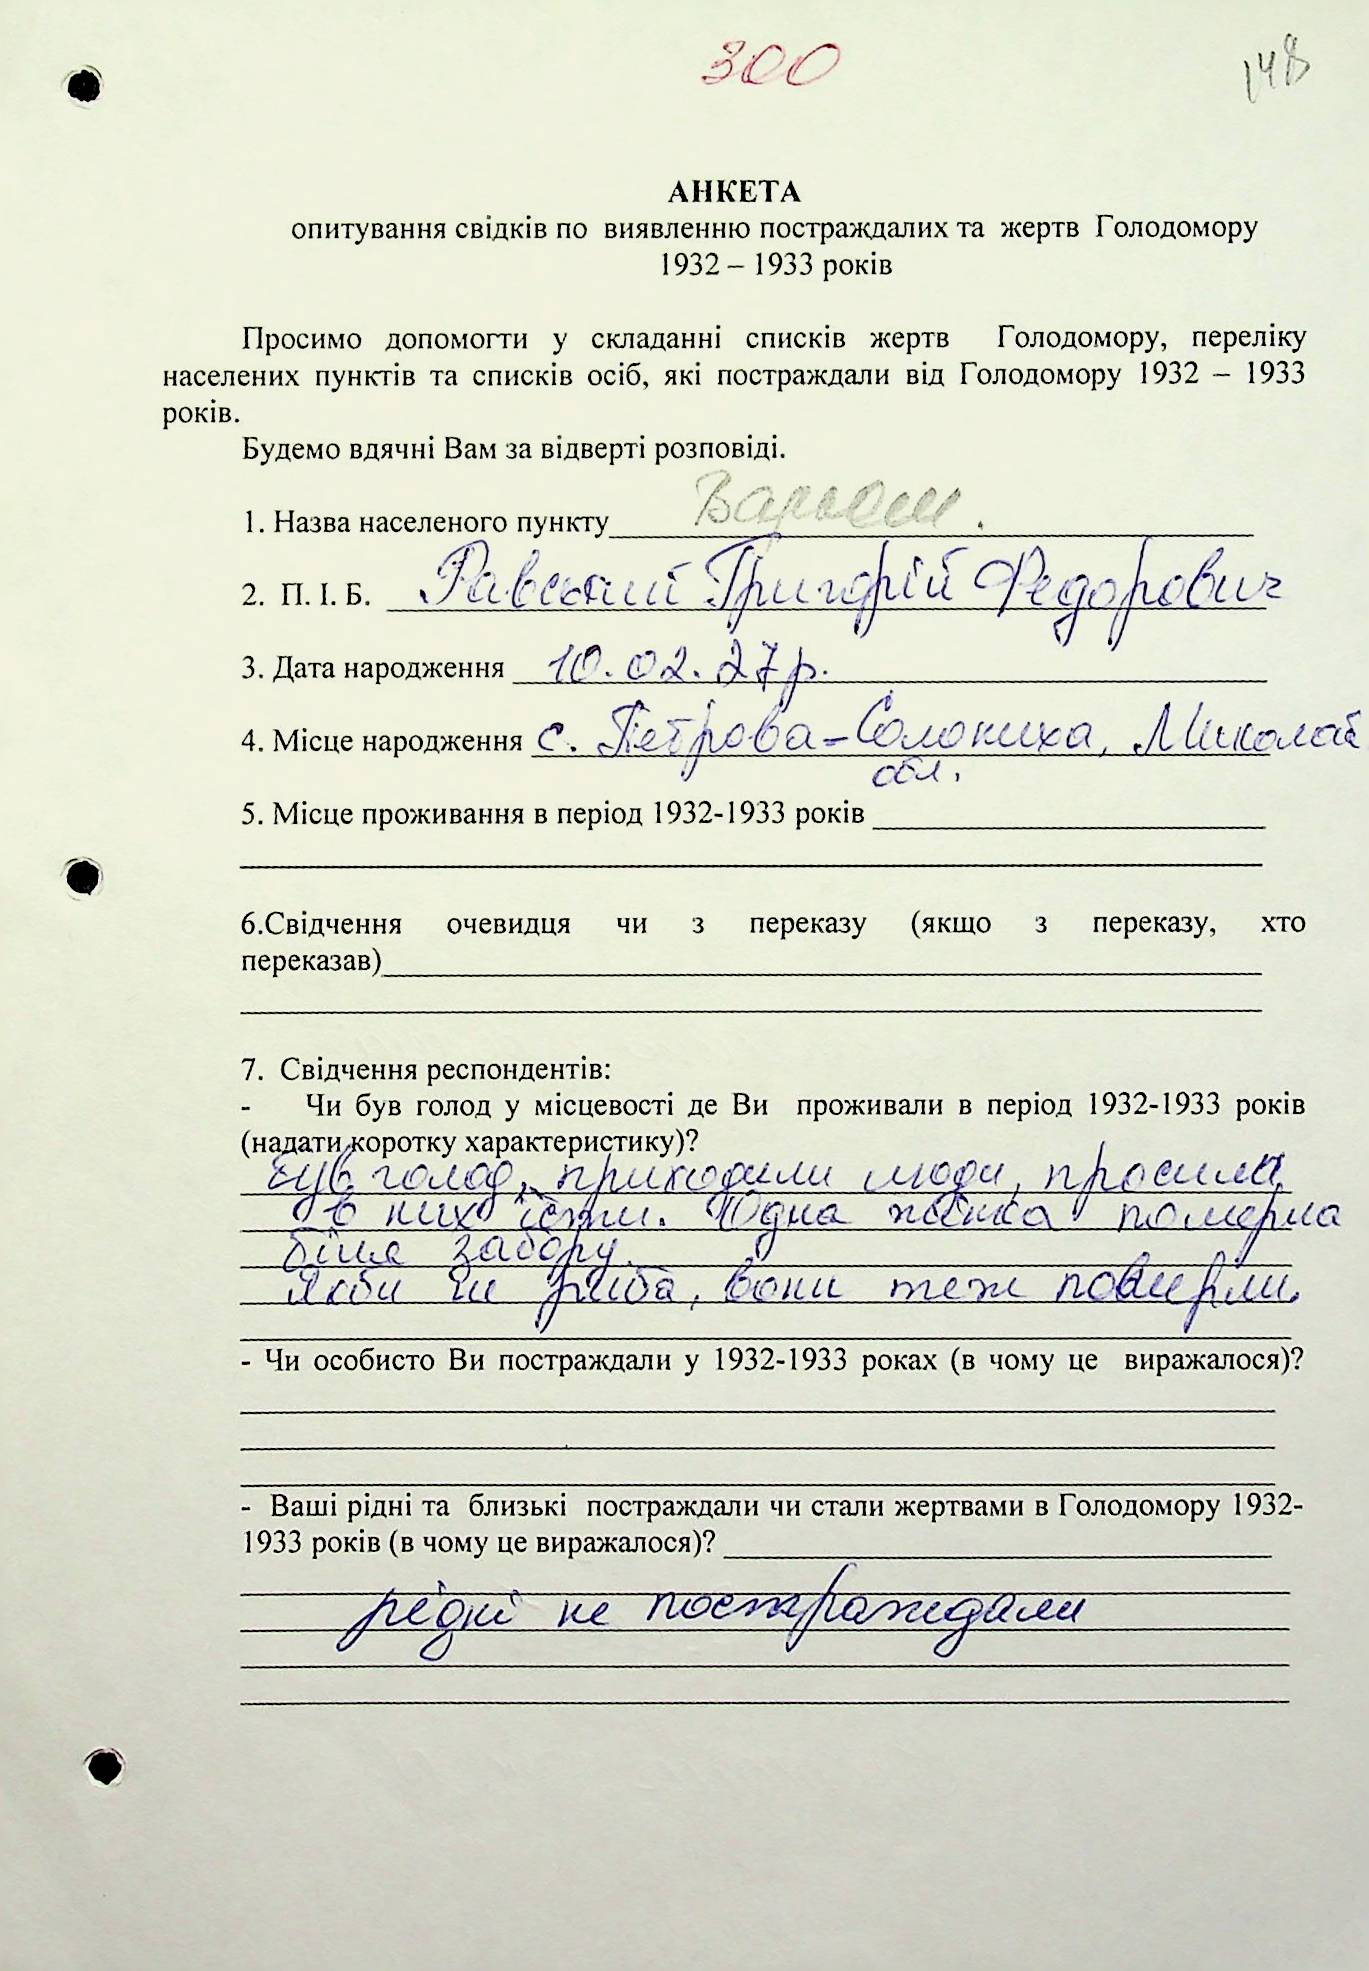 300
148
АНКЕТА
опитування свідків по виявленню постраждалих та жертв Голодомору
1932 – 1933 років
Просимо допомогти у складанні списків жертв Голодомору, переліку
населених пунктів та списків осіб, які постраждали від Голодомору 1932 – 1933
років.
Будемо вдячні Вам за відверті розповіді.
1. Назва населеного пункту
2. П. І. Б. Равський Григорій Федорович
3. Дата народження 10.02.27р.
4. Місце народження с. Петрова-Солониха, Миколаїв
обл.
5. Місце проживання в період 1932-1933 років
6.Свідчення очевидця чи з переказу (якщо з переказу, хто
переказав)
7. Свідчення респондентів:
- Чи був голод у місцевості де Ви проживали в період 1932-1933 років
(надати коротку характеристику)?
Був голод, приходили люди, просили
в них їсти. Одна жінка померла
біля забору.
Якби не риба, вони теж повмерли.
- Чи особисто Ви постраждали у 1932-1933 роках (в чому це виражалося)?
- Ваші рідні та близькі постраждали чи стали жертвами в Голодомору 1932-
1933 років (в чому це виражалося)?
рідні не постраждали